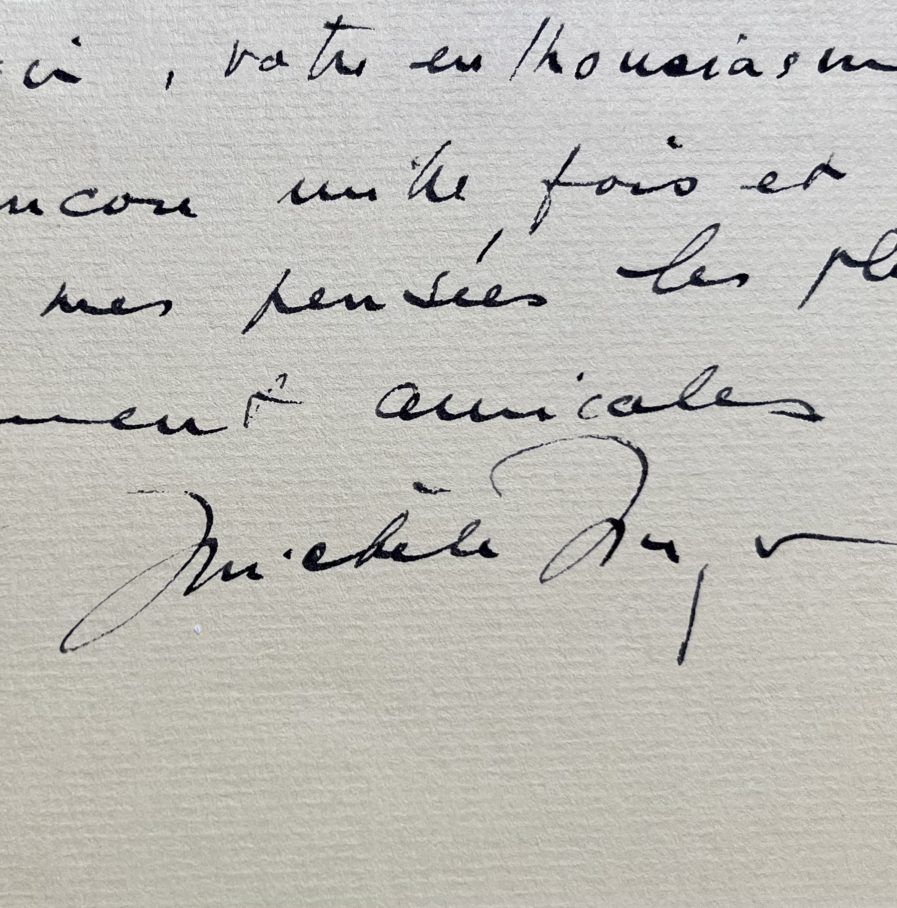 , votre enthousiasm
encore mille fois et
mes pensées les pl
ment amicales
Michèle